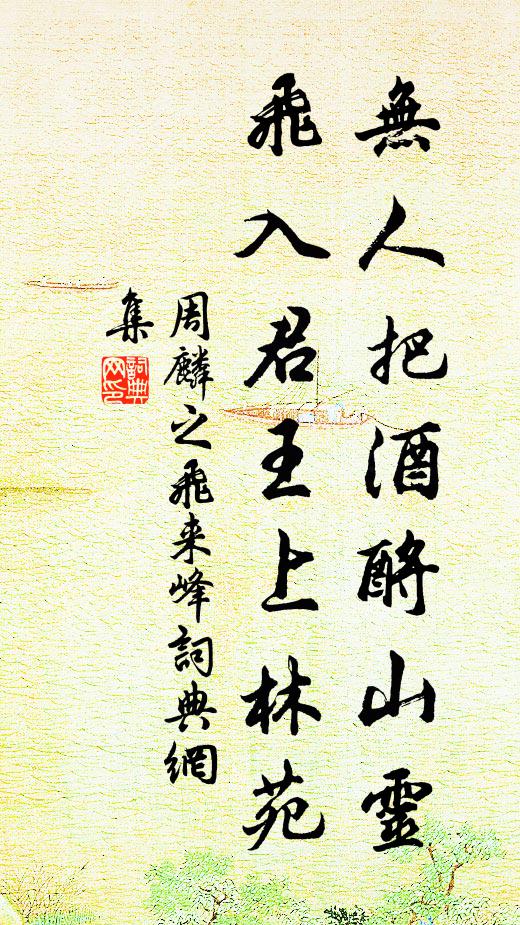 無人把酒酹山靈
飛入君王上林苑
周麟之飛来峰詞典網
集
詞典
网印